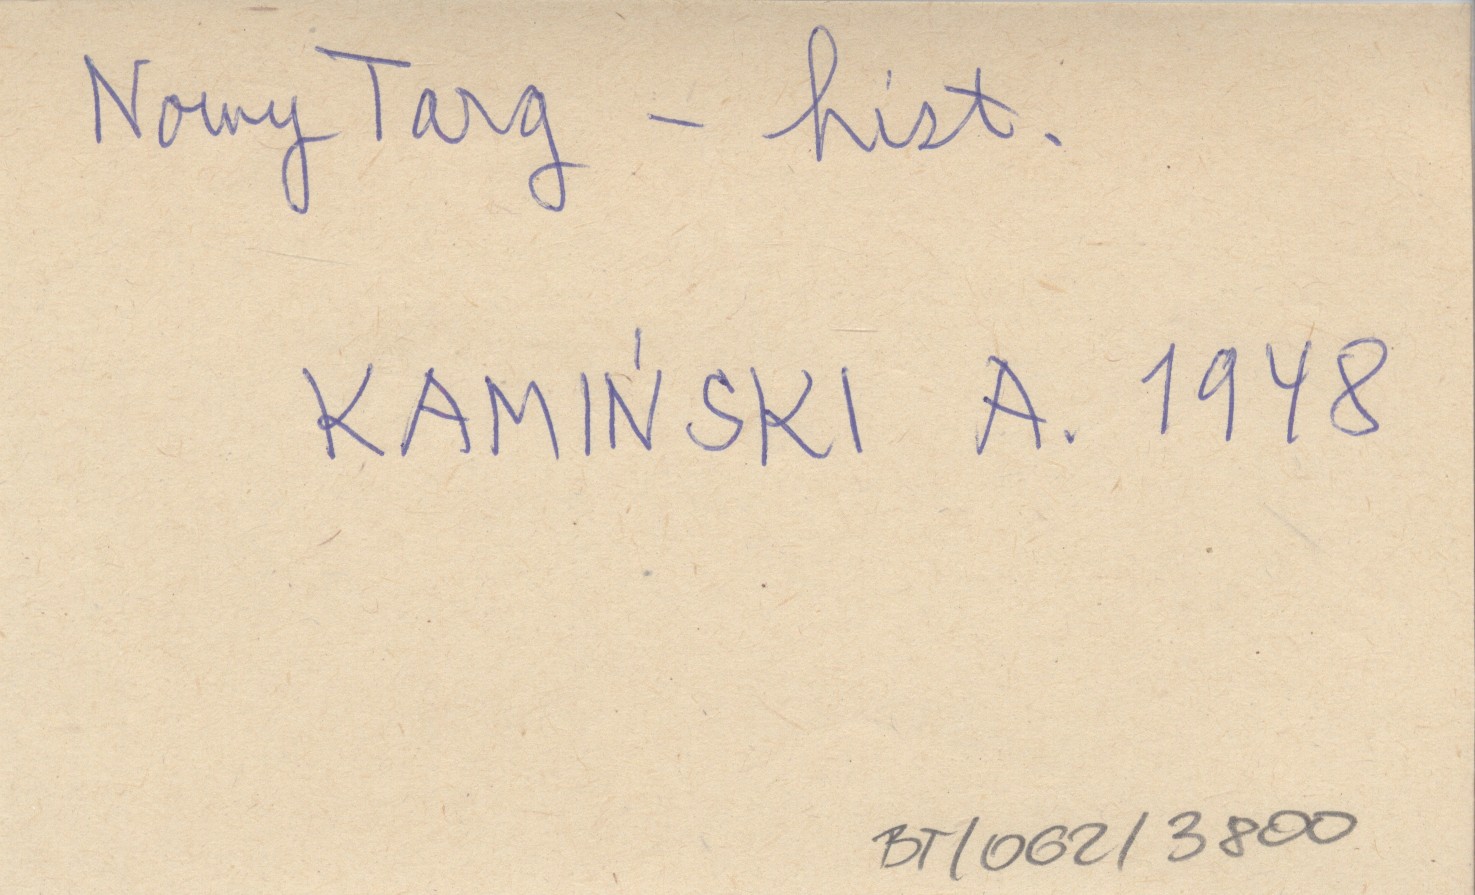 Nowy Targ – hist.
KAMIŃSKI A. 1948
BT/062/3800